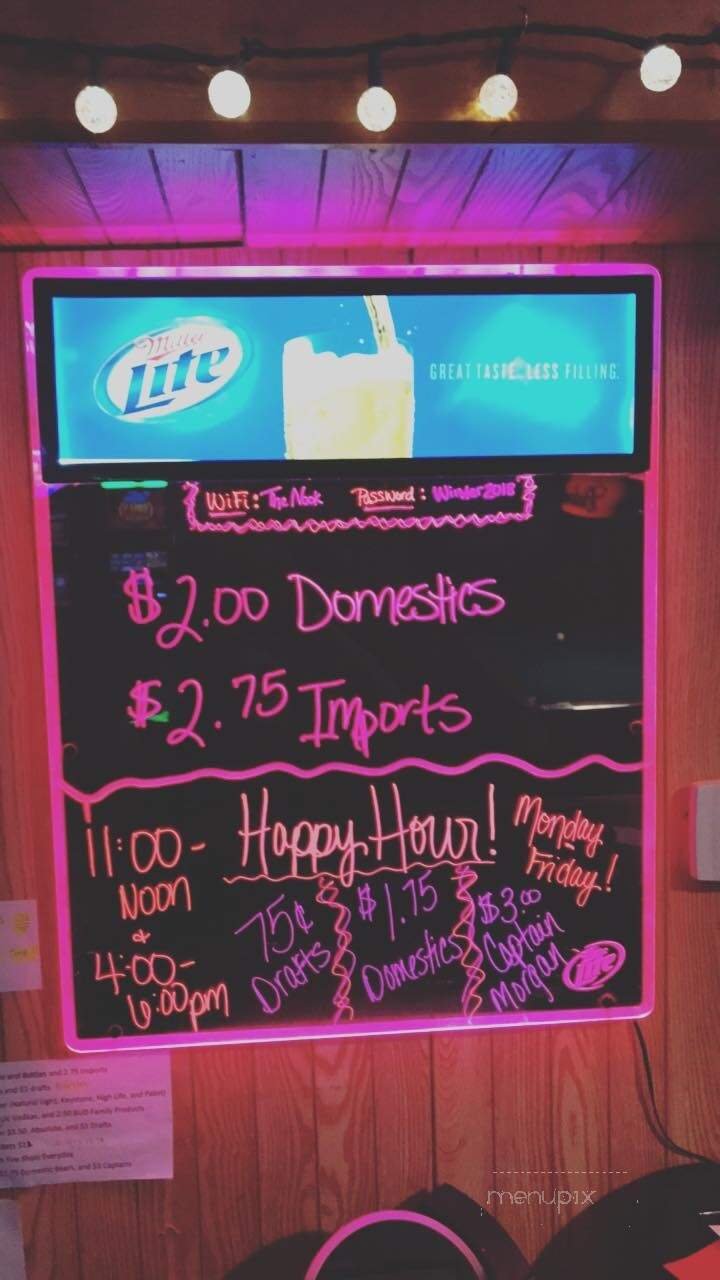 Miller
Lite
GREAT TASTE LESS FILLING.
WiFi: The Nook Password: Winter2018
$2.00 Domestics
$2.75 Imports
11:00-
Noon
&
4:00-
6:00pm
Happy Hour!
Monday
Friday!
75¢
Drafts
$1.75
Domestics
$3.00
Captain
Morgan
Lite
and 2.75 Imports
and $3 drafts
(Natural Light, Keystone, High Life, and Pabst)
Vodkas, and 2.50 BUD Family Products
$3.50, Absolute, and $3 Drafts
Shots Everyday
Domestic Beers, and $3 Captains
menupix